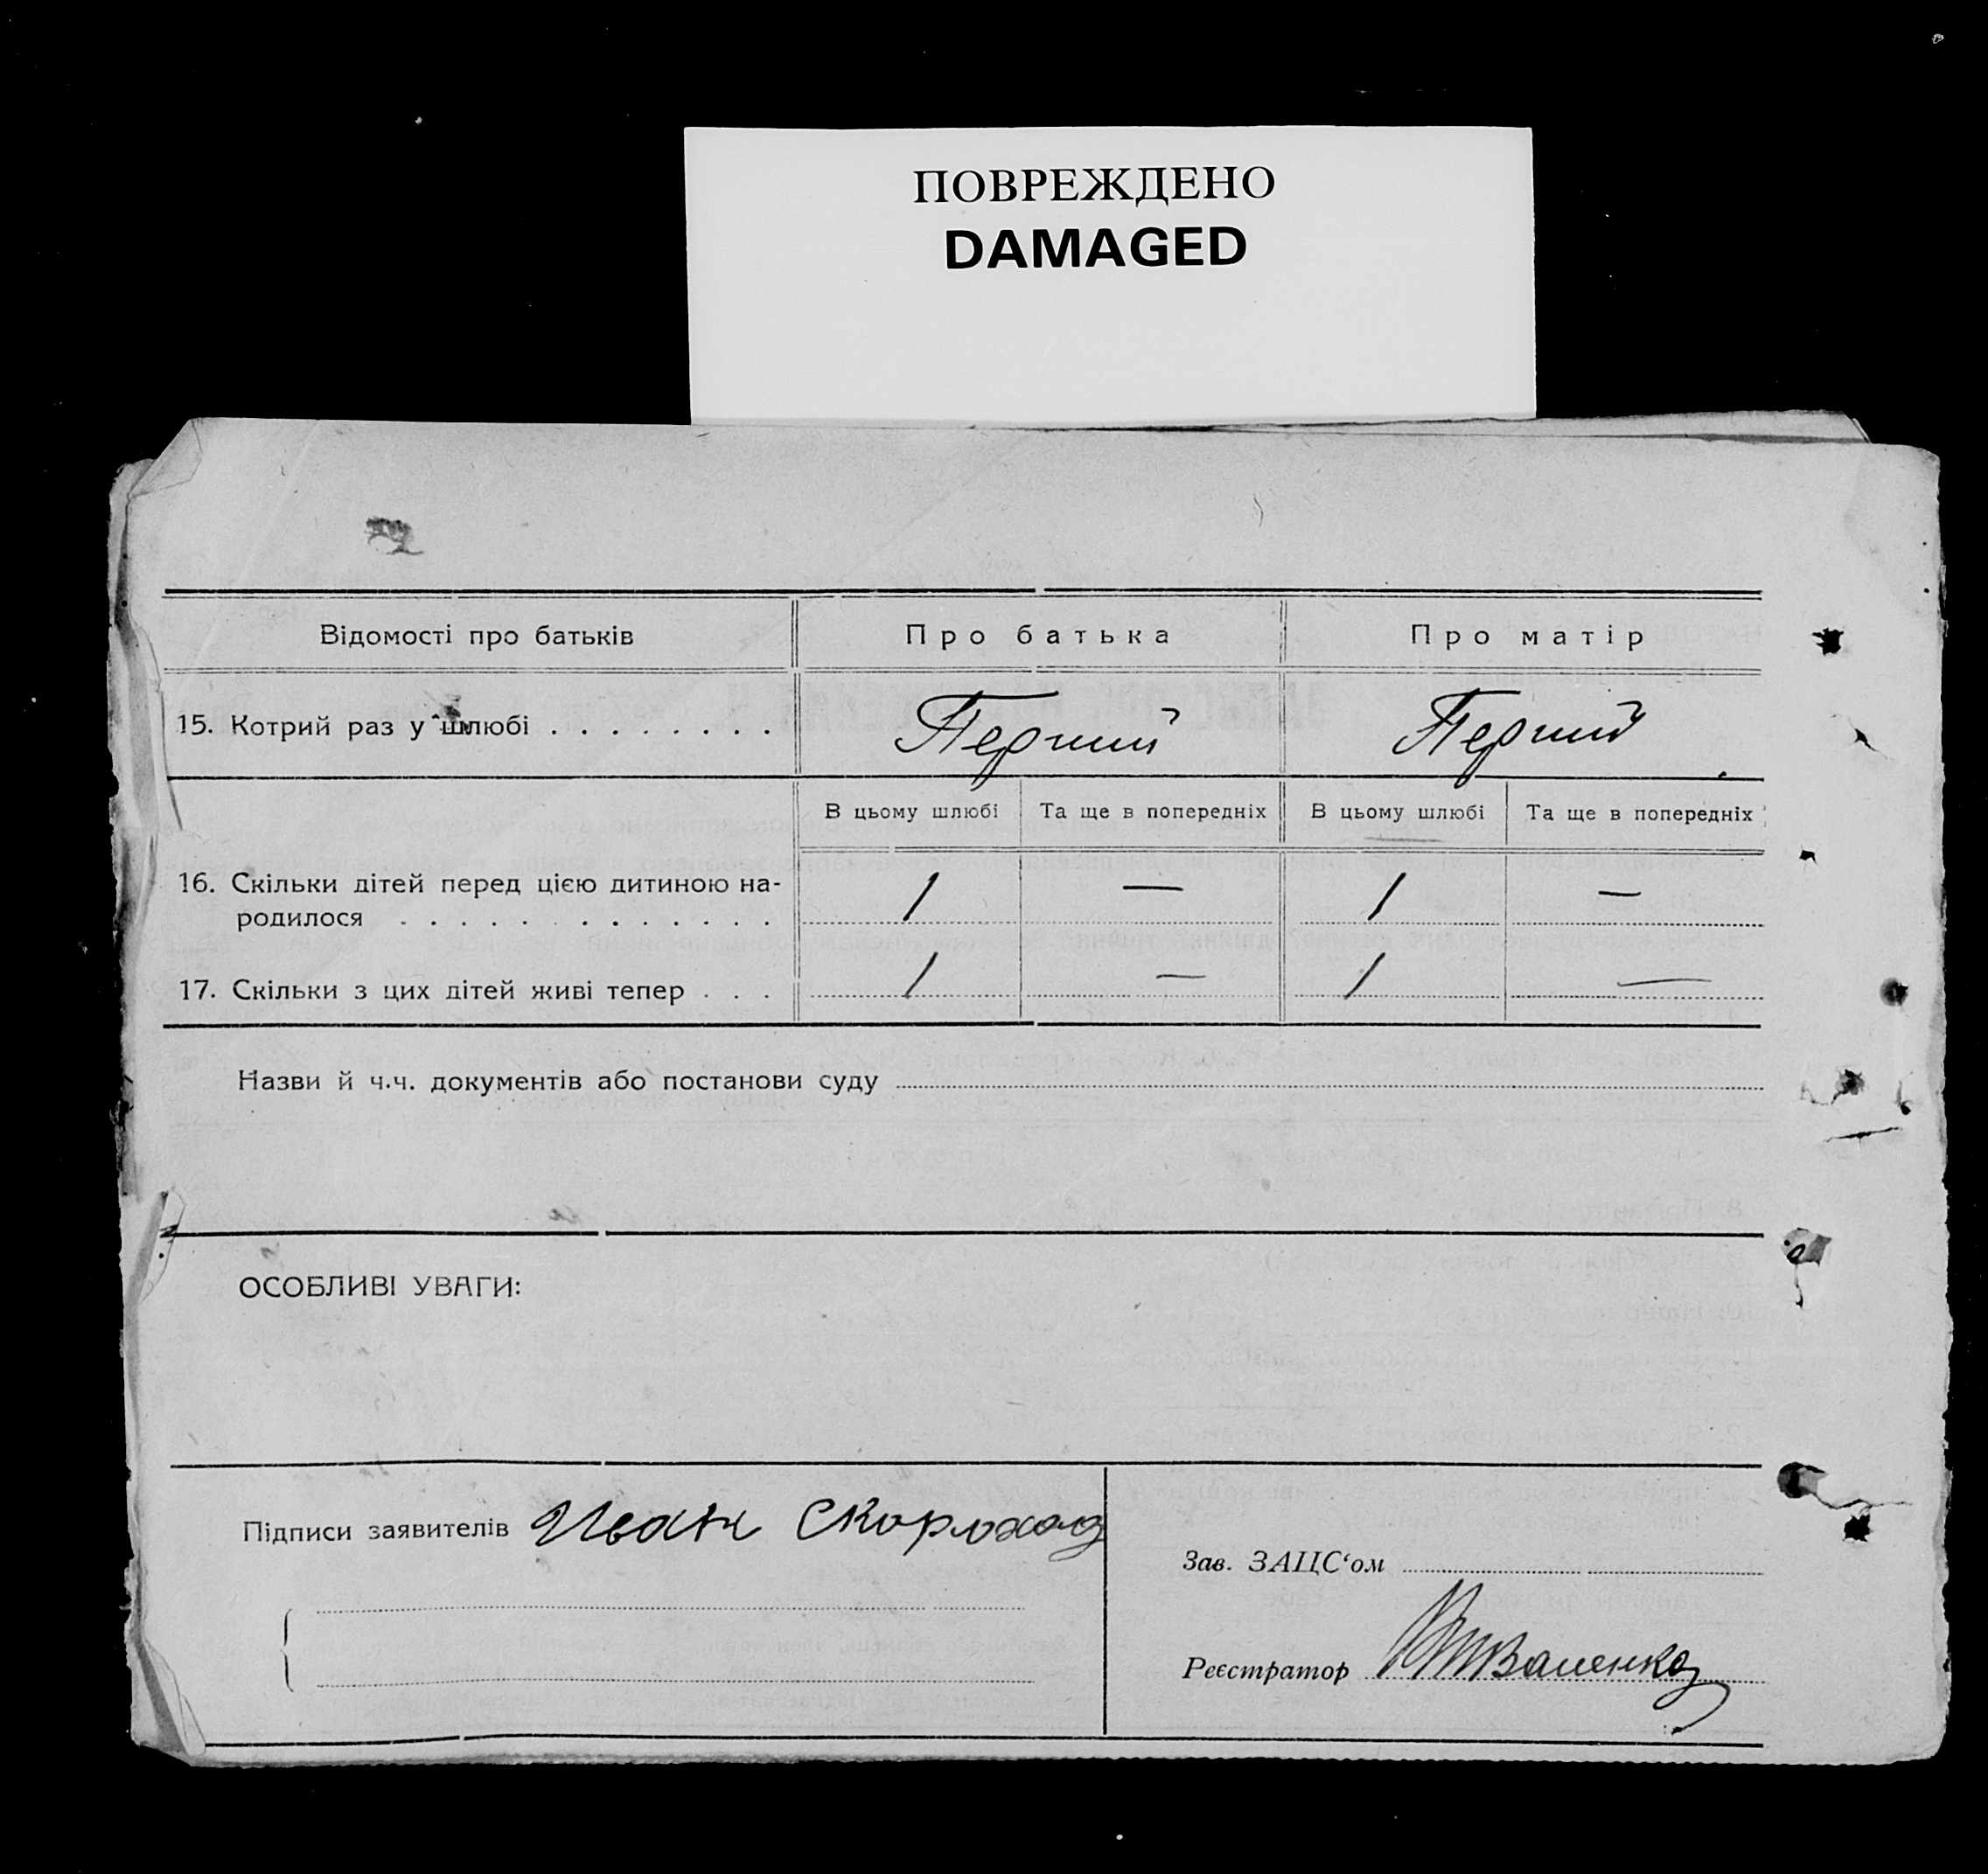 ПОВРЕЖДЕНО
DAMAGED
Відомості про батьків Про батька Про матір
15. Котрий раз у шлюбі . . . . . . . . Перший Перший
В цьому шлюбі Та ще в попередніх В цьому шлюбі Та ще в попередніх
16. Скільки дітей перед цією дитиною на-
родилося . . . . . . . . . . . . . 1 — 1 —
17. Скільки з цих дітей живі тепер . . . 1 — 1 —
Назви й ч.ч. документів або постанови суду
ОСОБЛИВІ УВАГИ:
Підписи заявителів Иван Скороход
Зав. ЗАЦС‘ом
Реєстратор